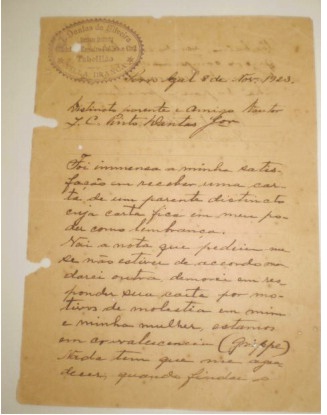 Dantas de Oliveira
Tabellião
8 de Nov. 1923.
Distincto parente e Amigo Doutor
J. C. Pinto Dantas Jor
Foi immensa a minha satis-
fação em receber uma car-
ta de um parente distincto
cuja carta fica em meu po-
der como lembrança.
Vai a nota que pediu me
se não estiver de accordo man-
darei outra, demorei em res-
ponder sua carta por mo-
tivos de molestia em mim
e minha mulher, estamos
em convalescencia (grippe)
Nada tem que me agra-
decer, quando findar o